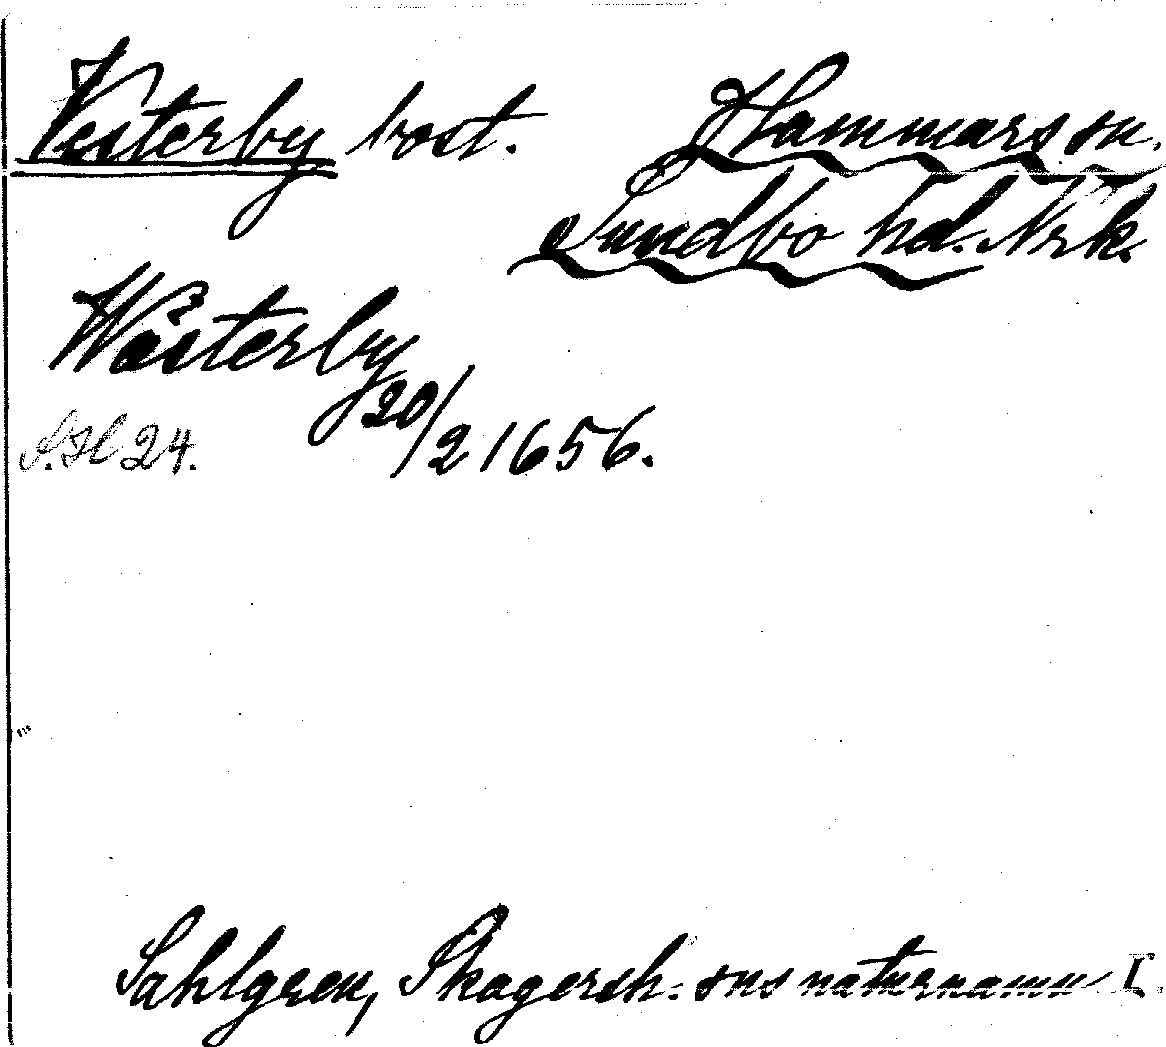 Vesterby bost. Hammars sn.
Sundbo hd. Nrk.
Wästerby
20/2 1656.
S. H 24.
Sahlgren, Skagersh. sns naturnamn I.